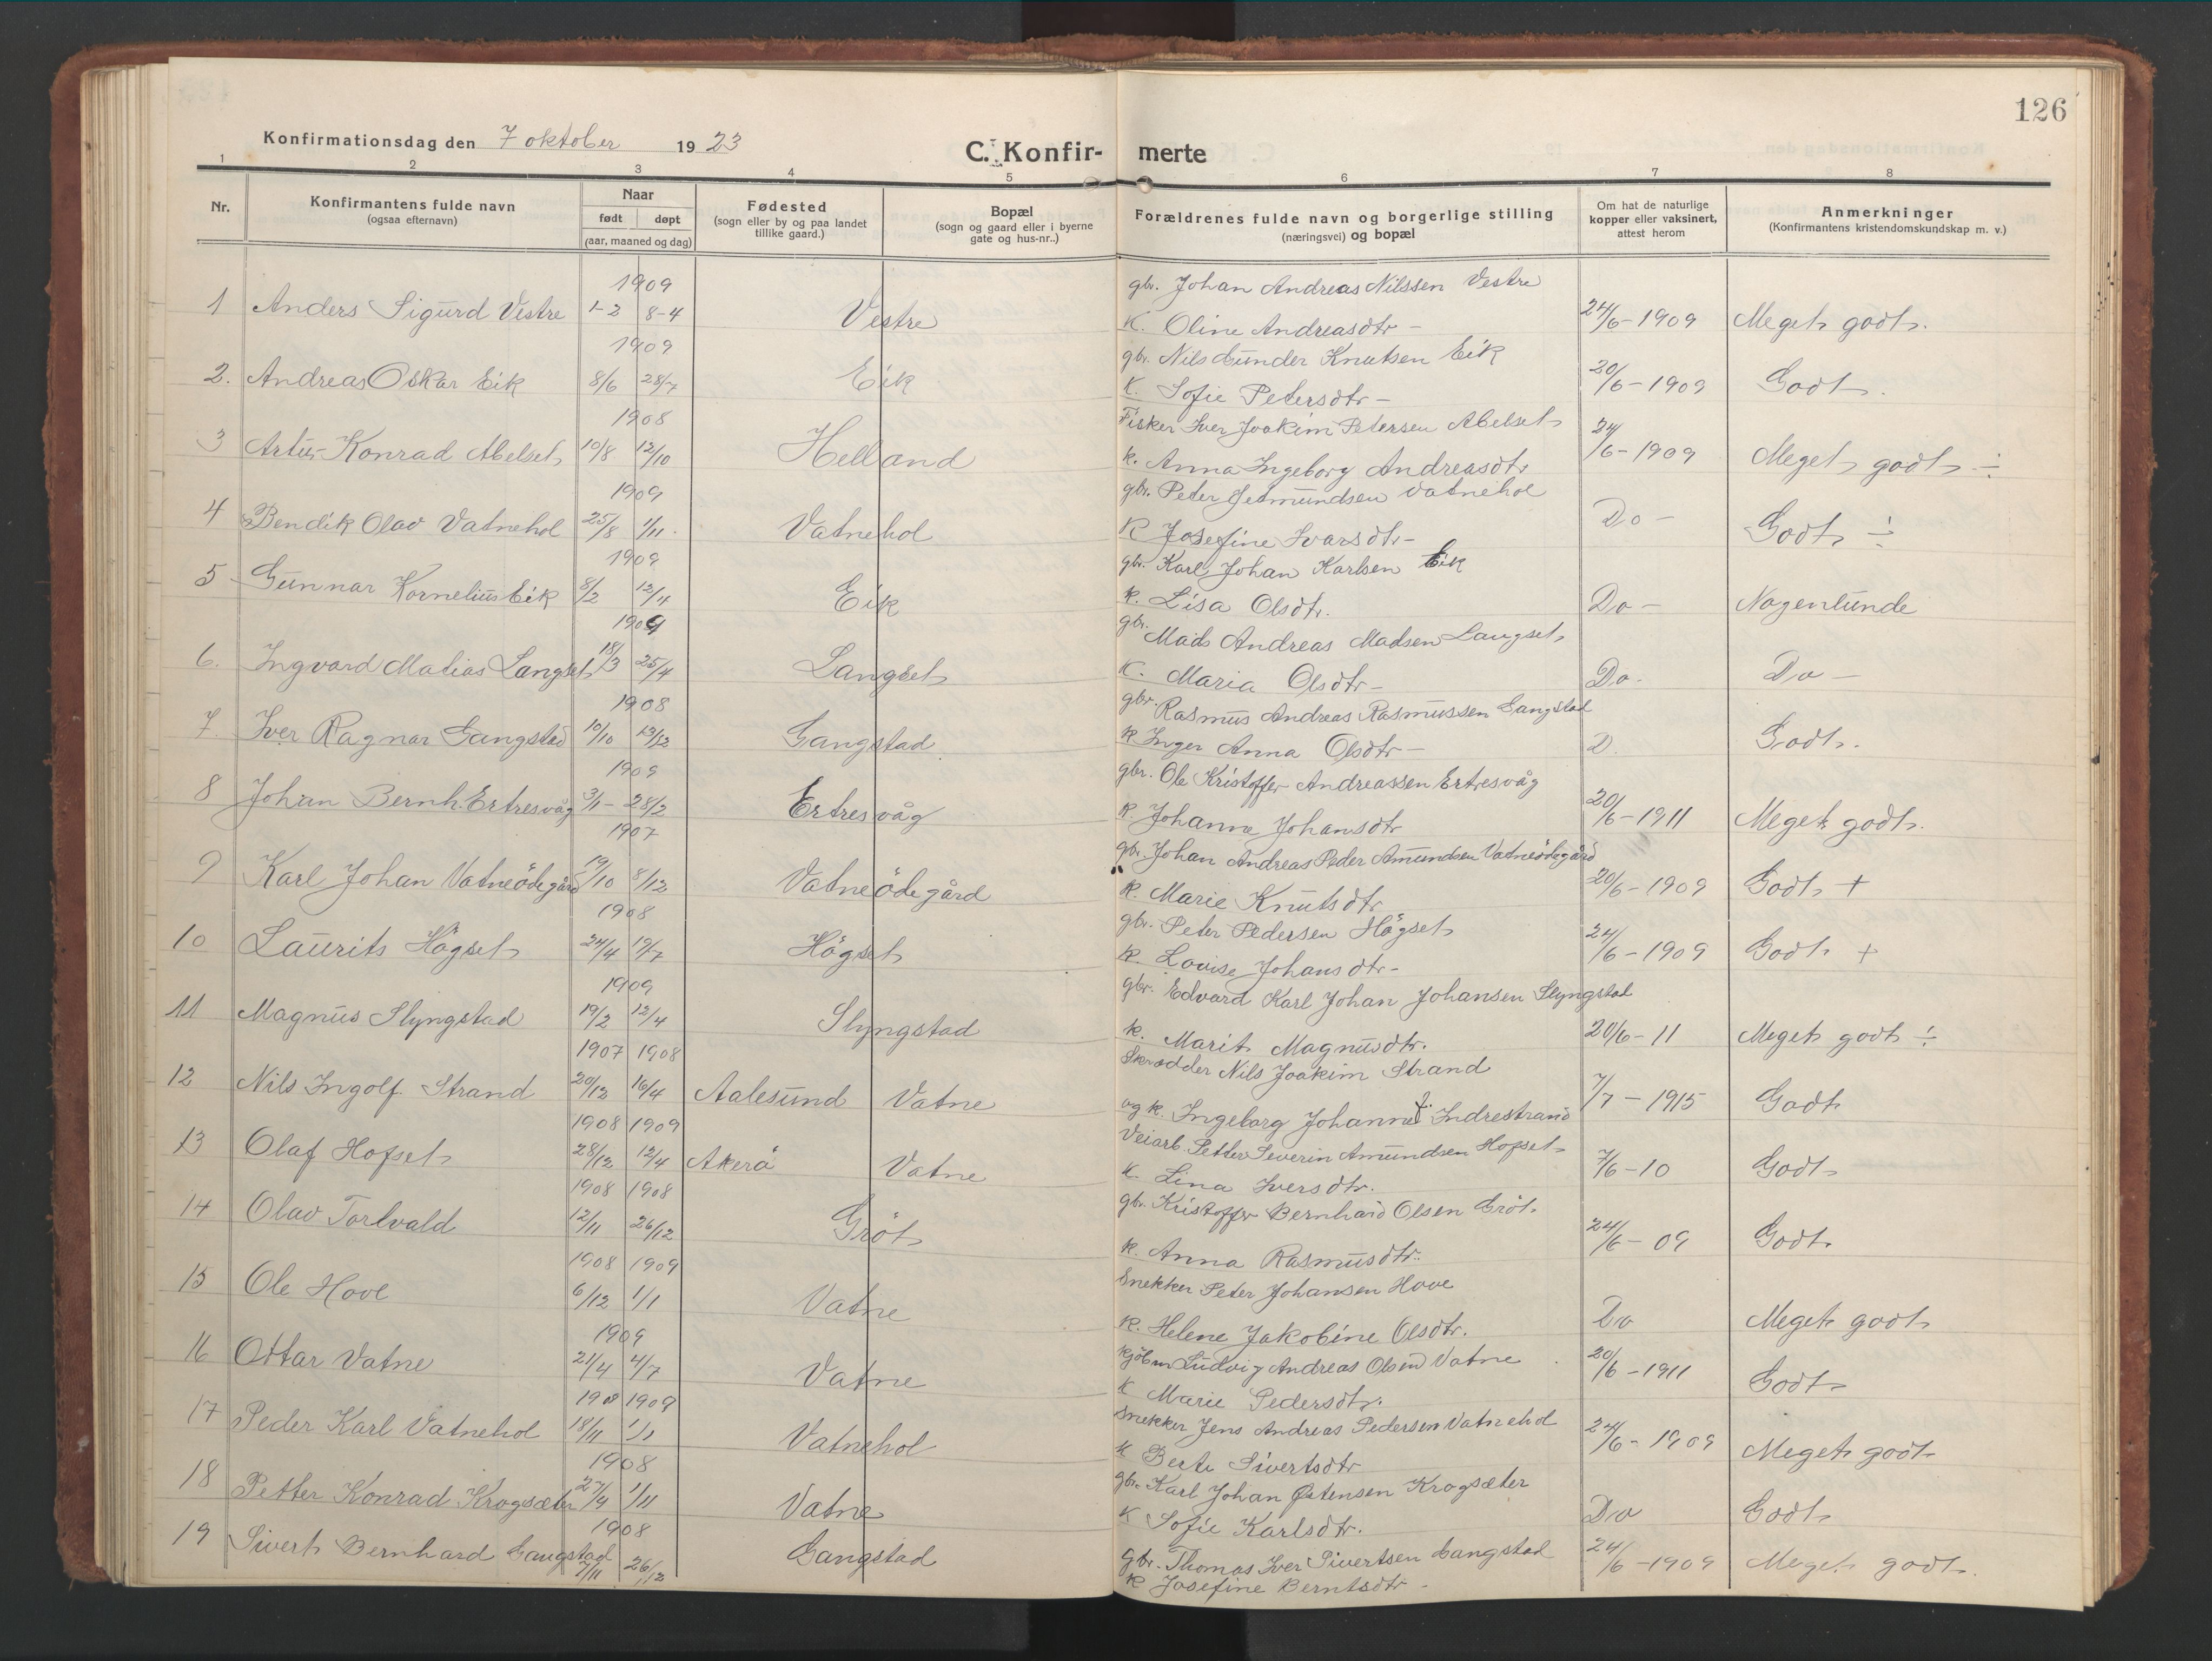 126
Konfirmationsdag den 7 oktober 1923
C. Konfir- merte
1 2 3 4 5 6 7 8
Nr.
Konfirmantens fulde navn
(ogsaa efternavn)
Naar
født døpt
(aar, maaned og dag)
Fødested
(sogn eller by og paa landet
tillike gaard.)
Bopæl
(sogn og gaard eller i byerne
gate og hus-nr..)
Forældrenes fulde navn og borgerlige stilling
(næringsvei) og bopæl
Om hat de naturlige
kopper eller vaksinert,
attest herom
Anmerkninger
(Konfirmantens kristendomskundskap m. v.)
1909
1 Anders Sigurd Vestre 1-2 8-4 Vestre
gbr. Johan Andreas Nilssen Vestre
K. Oline Andreasdtr -
24/6-1909 Meget godt.
1909
2. Andreas Oskar Eik 8/6 28/7 Eik
gbr. Nils Gunder Knutsen Eik
K. Sofie Petersdtr -
20/6-1909 Godt.
1908
3 Artur Konrad Abelset 10/8 12/10 Helland
Fisker Iver Joakim Petersen Abelset
k. Anna Ingeborg Andreasdtr
24/6-1909 Meget godt ÷
1909
4 Bendik Olav Vatnehol 25/8 1/11. Vatnehol
gbr. Peter Jetmundsen Vatnehol
K Josefine Ivarsdtr-
Do - Godt ÷
1909
5 Gunnar Kornelius Eik 8/2 12/4 Eik
gbr. Karl Johan Karlsen Eik
k. Lisa Olsdtr.
Do - Nogenlunde
1909
6. Ingvard Matias Langset 18/3 25/4 Langset
gbr. Mads Andreas Madsen Langset
K. Maria Olsdtr -
Do. Do -
1908
7. Iver Ragnar Gangstad 10/10 13/12 Gangstad
gbr. Rasmus Andreas Rasmussen Gangstad
k Inger Anna Olsdtr -
D. Godt.
1909
8 Johan Bernh. Ertresvåg 3/1 - 28/2 Ertresvåg
gbr. Ole Kristoffer Andreassen Ertresvåg
k. Johanne Johansdtr
20/6-1911 Meget godt.
1907
9 Karl Johan Vatneödegård 19/10 8/12 Vatneödegård
gbr. Johan Andreas Peder Amundsen Vatneödegård
k. Marie Knutsdtr
20/6-1909 Godt +
1908
10 Laurits Högset 24/4 19/7 Högset
gbr. Peter Pedersen Högset
k. Lovise Johansdtr-
24/6-1909 Godt +
1909
11 Magnus Slyngstad 19/2 12/4 Slyngstad
gbr. Edvard Karl Johan Johansen Slyngstad
k. Marit Magnusdtr.
20/6-11 Meget godt ÷
1907 1908
12 Nils Ingolf Strand 20/12 16/4 Aalesund Vatne
Skrædder Nils Joakim Strand
og k. Ingeborg Johanne f. Indrestrand
7/7-1915 Godt
1908 1909
13 Olaf Hofset 28/12 12/4 Akerö Vatne
Veiarb. Petter Severin Amundsen Hofset
K Lina Iversdtr.
7/6-10 Godt
1908 1908
14 Olav Torlvald 12/11 26/12 Gröt
gbr. Kristoffer Bernhard Olsen Gröt.
k. Anna Rasmusdtr.
24/6-09 Godt.
1908 1909
15 Ole Hove 6/12 1/1 Vatne
Snekker Peter Johansen Hove
k. Helene Jakobine Olsdtr.
Do Meget godt
1909
16 Ottar Vatne 21/4 4/7 Vatne
kjöbm Ludvig Andreas Olsen Vatne
K Marie Pedersdtr.
20/6-1911 Godt
1908 1909
17 Peder Karl Vatnehol 18/11 1/1 Vatnehol
Snekker Jens Andreas Pedersen Vatnehol
k Berte Sivertsdtr
24/6-1909 Meget godt
1908
18 Petter Konrad Krogsæter 27/9 1/11 Vatne
gbr. Karl Johan Østensen Krogsæter
k Sofie Karlsdtr.
Do Godt
1908
19 Sivert Bernhard Gangstad 7/11 26/12 Gangstad
gbr. Thomas Iver Sivertsen Gangstad
k Josefine Berntsdtr -
24/6-1909 Meget godt.